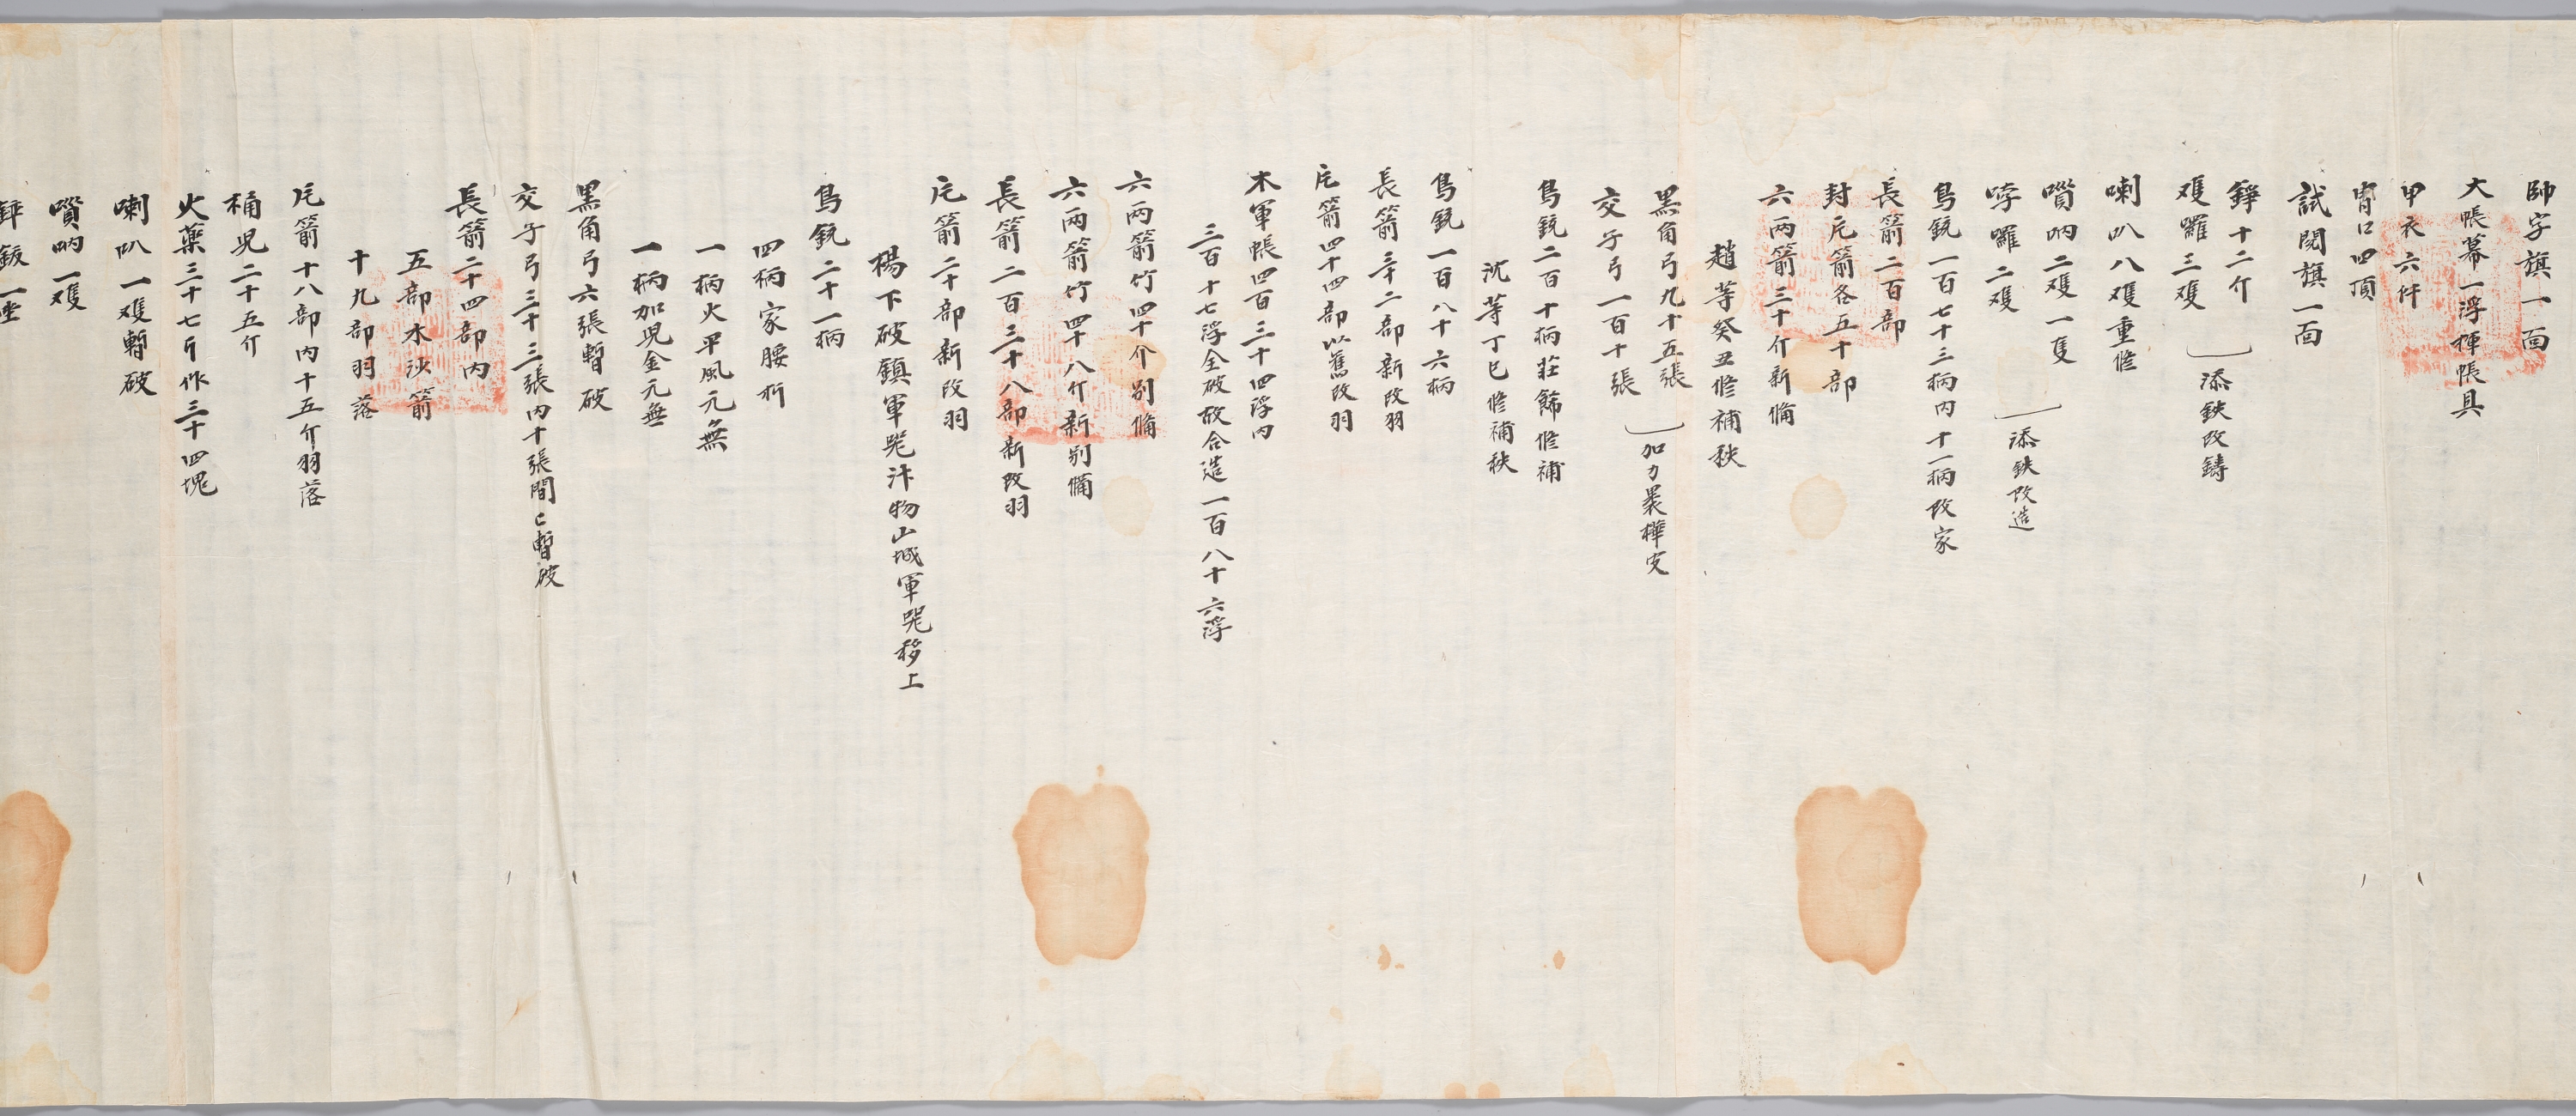 帥字旗一面
大帳幕一浮揮帳具
甲衣六件
胄口四頂
試閱旗一面
錚十二介
㺚囉三㺚
添鉄改鑄
喇叭八㺚重修
嗩吶二㺚一隻
哱囉二㺚
添鉄改造
鳥銃一百七十三柄內十一柄改家
長箭二百部
封片箭各五十部
六兩箭三十介新備
趙等癸丑修補秩
黑角弓九十五張
交子弓一百十張
加力裹樺皮
鳥銃二百十柄莊餙修補
沈等丁巳修補秩
鳥銃一百八十六柄
長箭三十二部新改羽
片箭四十四部以舊改羽
木軍帳四百三十四浮內
三百十七浮全破故合造一百八十六浮
六兩箭竹四十介別備
六兩箭竹四十八介新別備
長箭二百三十八部新改羽
片箭二十部新改羽
楊下破鎮軍器汁物山城軍器移上
鳥銃二十一柄
四柄家腰折
一柄火平風元無
一柄加兒金元無
黑角弓六張暫破
交子弓三十三張內十張間已暫破
長箭二十四部內
五部水沙箭
十九部羽落
片箭十八部內十五介羽落
桶兒二十五介
火藥三十七斤作三十四塊
喇叭一㺚暫破
嗩吶一㺚
鈸一坐